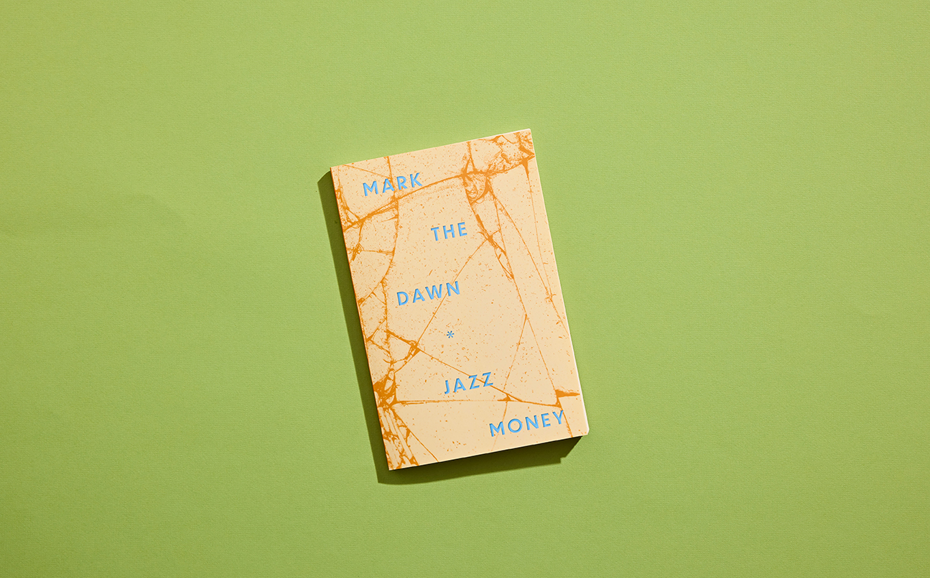 MARK
THE
DAWN
*
JAZZ
MONEY